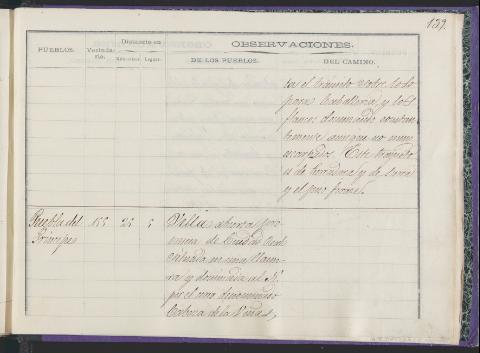 139.
PUEBLOS.
Vecindario.
Distancia en
Kilómetros
Leguas.
OBSERVACIONES.
DE LOS PUEBLOS.
DEL CAMINO.
el tránsito sobre todo
para Caballería y los
flancos dominados constan
temente aunque no muy
Este trayecto
es de herradura y de sierra
y el piso firme.
Puebla del
Príncipe
155
25
5
Villa abierta pro
vincia de Ciudad Real
situada en una llanu
ra y dominada al N.
por el cerro denominado
Cabeza de la